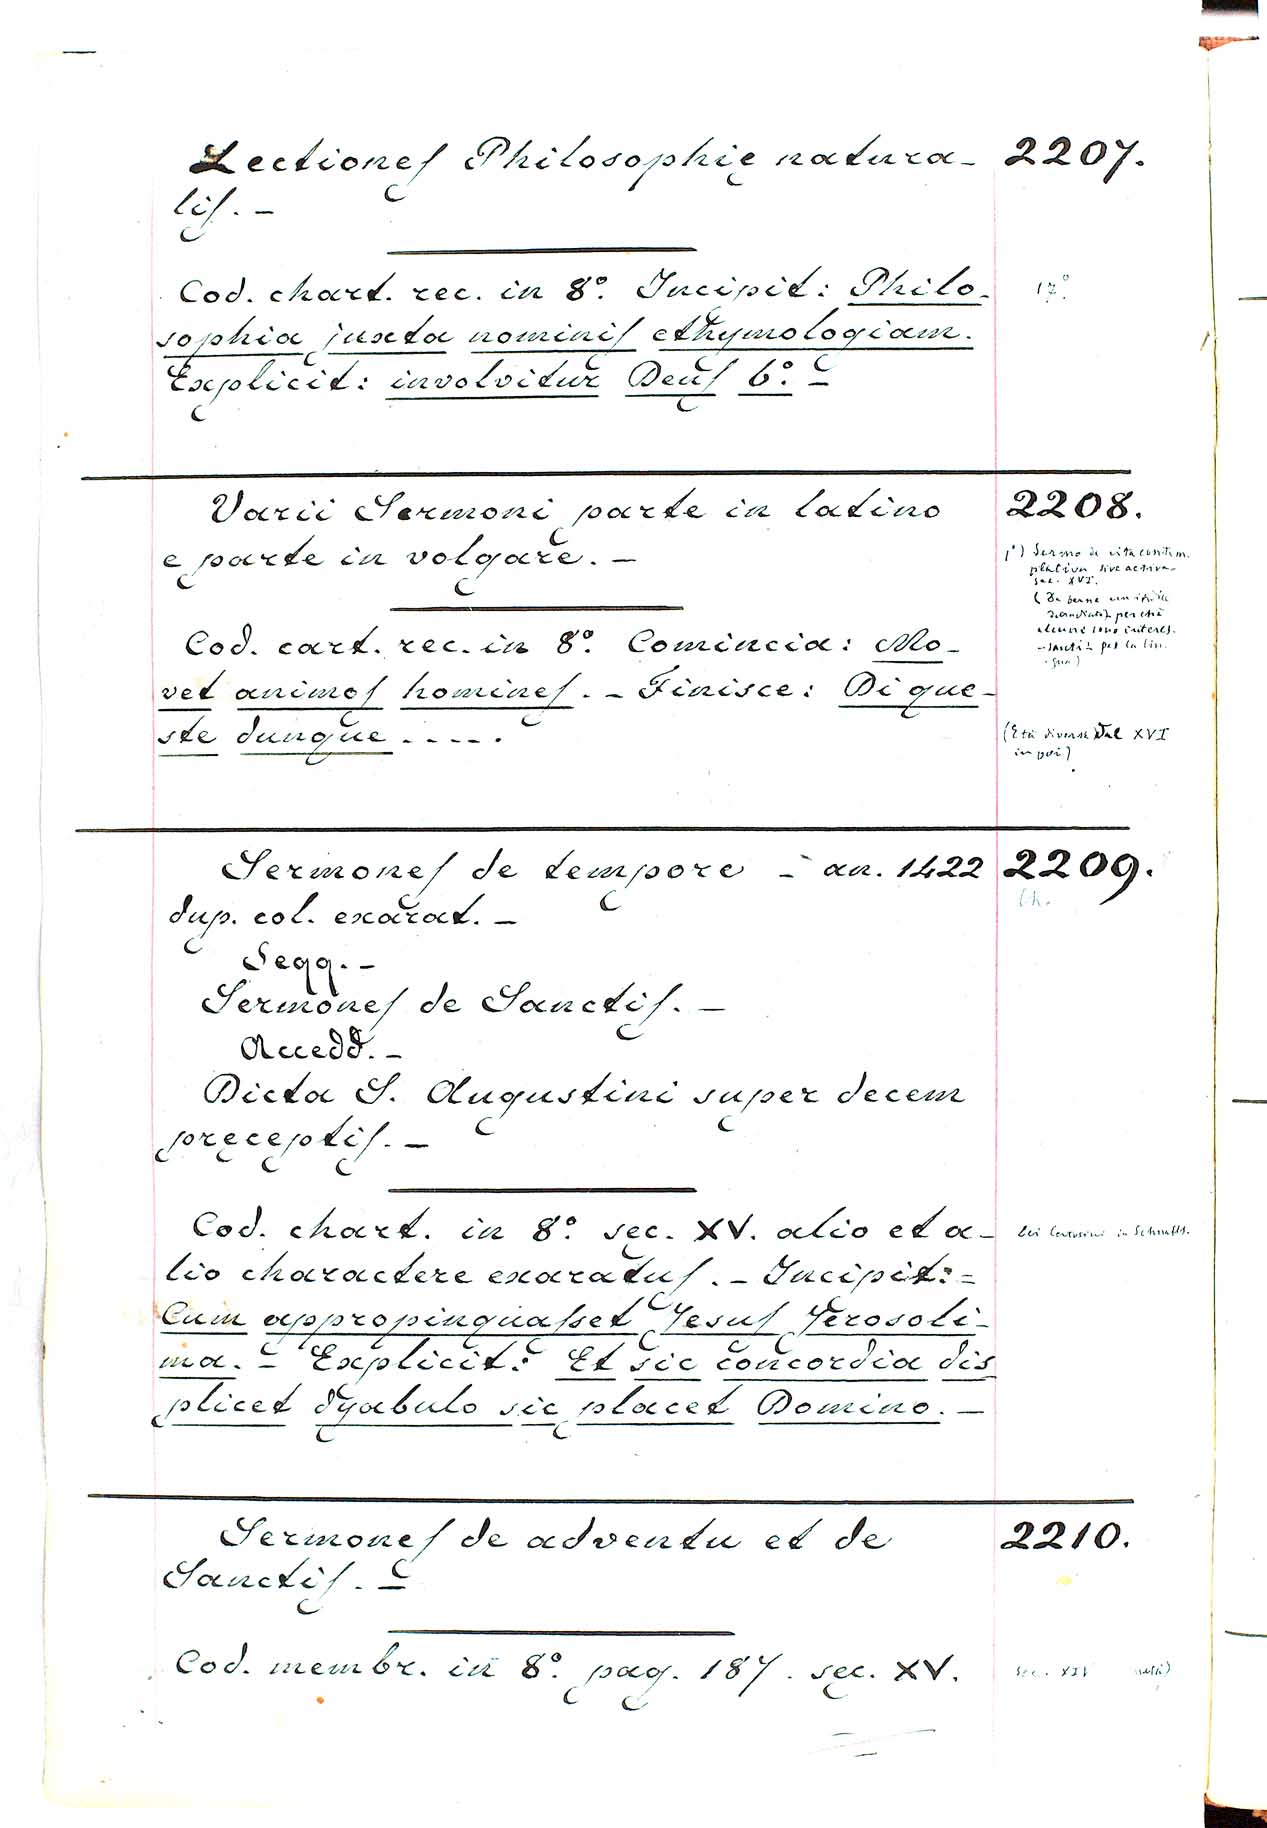 Lectiones Philosophię natura- 2207.
lis. -
Cod. chart. rec. in 8º. Incipit: Philo- 17º
sophia juxta nominis ethymologiam.
Explicit: involvitur Deus 6º. -
Varii Sermoni parte in latino 2208.
e parte in volgare. -
1º) Sermo de vita contem
plativa sive activa
sec. XVI.
perchè
alcuni sono interes.
santi per la lin
gua)
Cod. cart. rec. in 8º. Comincia: Mo-
vet animos homines. - Finisce: Di que-
ste dunque .....
(Età diverse dal XVI
in poi)
Sermones de tempore - an. 1422 2209.
dup. col. exarat. - Ch.
Seqq. -
Sermones de Sanctis. -
Accedd. -
Dicta S. Augustini super decem
pręceptis. -
Cod. chart. in 8º. sęc. XV. alio et a-
lio charactere exaratus. - Incipit: =
Cum appropinquasset Jesus Jerosoli-
ma. - Explicit: Et sic concordia dis
plicet dyabulo sic placet Domino. -
Sermones de adventu et de 2210.
Sanctis. -
Cod. membr. in 8º. pag. 187. sęc. XV. sec. XIV